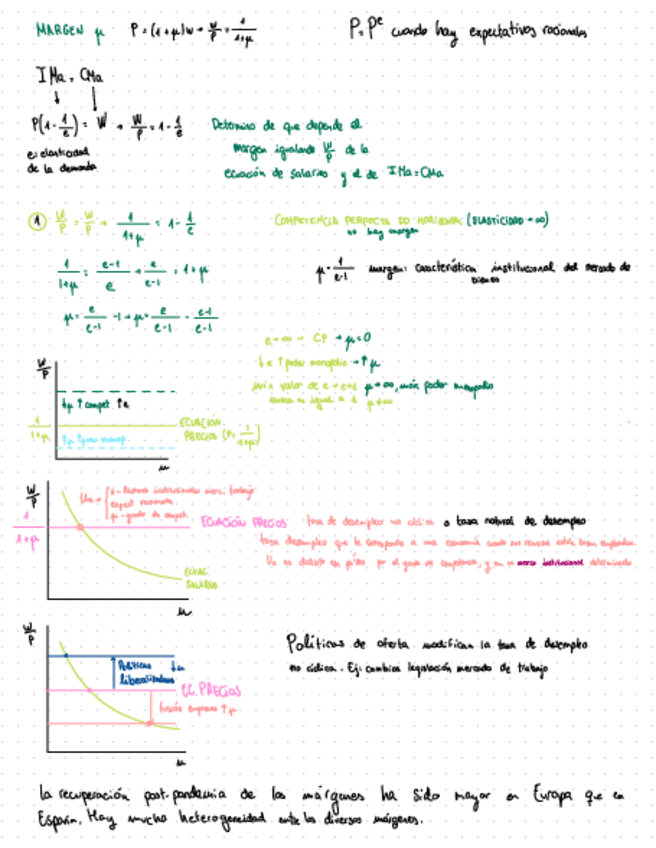 MARGEN μ   P=(1+μ)w → W/P = 1/1+μ   P=Pe cuando hay expectativas racionales
IMa = CMa
P(1-1/e) = W → W/P = 1-1/e
e: elasticidad
de la demanda
Determino de que depende el
margen igualando W/P de la
ecuación de salarios y el de IMa=CMa
1 W/P = W/P → 1/1+μ = 1-1/e
COMPETENCIA PERFECTA DD HORIZONTAL (ELASTICIDAD → ∞)
no hay margen
1/1+μ = e-1/e → e/e-1 = 1+μ
μ = 1/e-1 margen: característica institucional del mercado de
bienes
μ = e/e-1 - 1 → μ = e/e-1 - e-1/e-1
e → ∞ → CP → μ=0
↓e ↑poder monopolio → ↑μ
min valor de e → e=1 μ → ∞, máx poder monopolio
nunca es igual a 1 μ≠∞
W/P
↓μ ↑compet ↑e
1/1+μ
ECUACIÓN
PRECIOS (P=1/1+μ)
↑μ ↑poder monop.
u
W/P
z - factores institucionales merc. trabajo
Un →
μ - grado de compet.
1/1+μ
ECUACIÓN PRECIOS
tasa de desempleo no cíclica o tasa natural de desempleo
tasa desempleo que le corresponde a una economía cuando sus recursos están bien empleados.
por el grado de competencia, y en un marco institucional determinado
ECUAC.
SALARIOS
u
W/P
Políticas
liberalizadoras
↓u
EC. PRECIOS
fusión empresas ↑μ
u
Políticas de oferta modifican la tasa de desempleo
no cíclica. Ej: cambios legislación mercado de trabajo
La recuperación post-pandemia de los márgenes ha sido mayor en Europa que en
España. Hay mucha heterogeneidad entre los diversos márgenes.